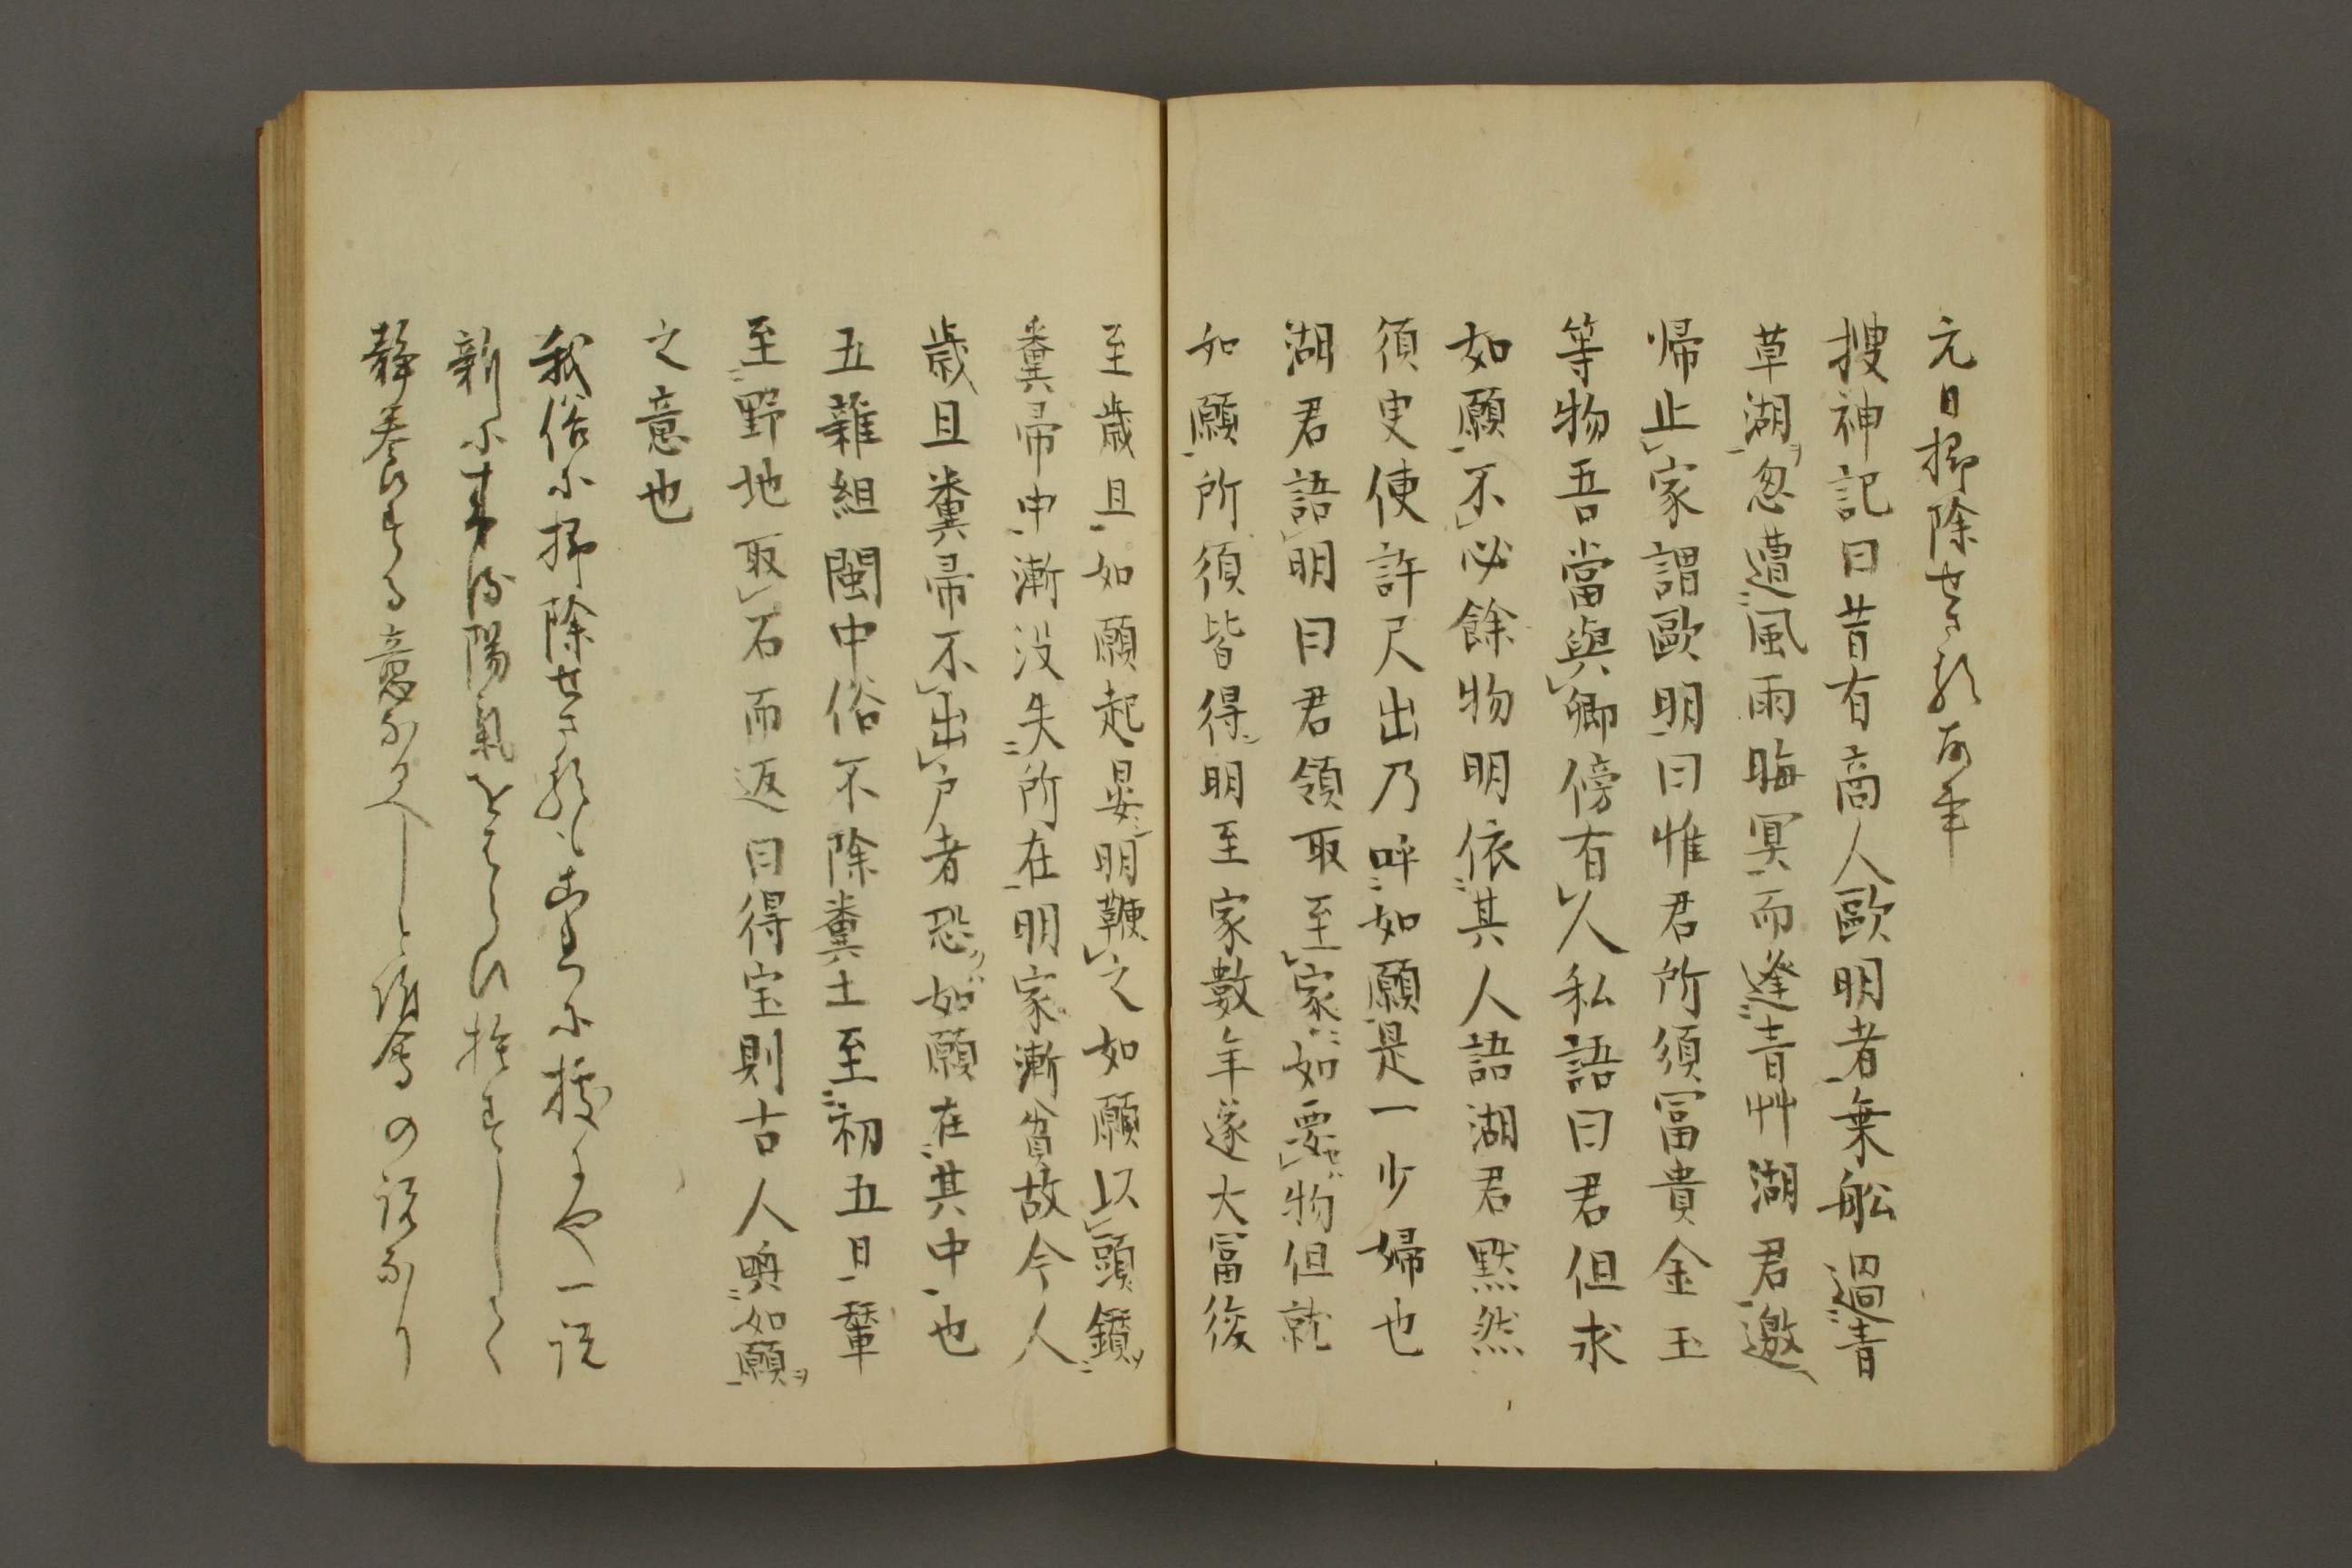 元日掃除せさる事
搜神記曰昔有商人歐明者乗舩過青
草湖忽遭風雨晦冥而逢青艸湖君邀
帰止家謂歐明曰惟君所須冨貴金玉
等物吾當與卿傍有人私語曰君但求
如願不必餘物明依其人語湖君黙然
須臾使許尺出乃呼如願是一少婦也
湖君語明曰君領取至家如要物但就
如願所須皆得明至家數年遂大冨後
至歳旦如願起晏明鞭之如願以頭鑚
糞帚中漸没失所在明家漸貧故今人
歳旦糞帚不出戸者恐如願在其中也
五雜組閩中俗不除糞土至初五日輦
至野地取石而返曰得宝則古人喚如願
之意也
我俗に掃除せさるもこれに據にや一説
新に来る陽氣をはらひ捨すして
静養する意なるへしと の説なり